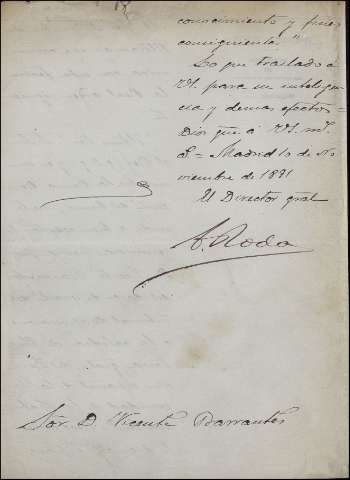 conocimiento y fines
consiguientes."
Lo que traslado á
V.I. para su inteligen-
cia y demas efectos=
Dios gue á V.I. ms.
as= Madrid 10 de No-
viembre de 1871
El Director gral
A. Roda
Sor. D. Vicente Barrantes